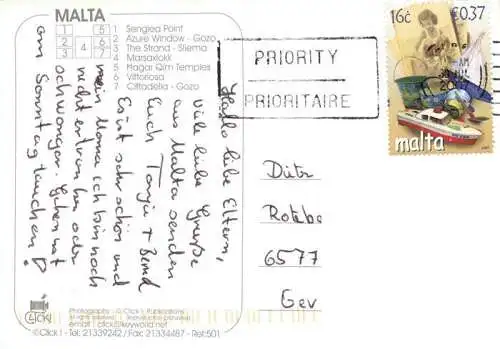 MALTA
1 Senglea Point
2 Azure Window - Gozo
3 The Strand - Sliema
4 Marsaxlokk
5 Ħaġar Qim Temples
6 Vittoriosa
7 Cittadella - Gozo
1 5
2 4 6
3 7
Hallo liebe Eltern,
viele liebe Grüsse
aus Malta senden
Euch Tanja + Bernd
Es ist sehr schön und
nein Mama ich bin noch
nicht ertrunken oder
schwanger. Gehen erst
am Sonntag tauchen
PRIORITY
PRIORITAIRE
16c €0.37
AM
malta
Dietr
Rotebo
6577
Gev
CLICK!
Photography - © Click!, Publications
All rights reserved Reproduction prohibited
email : click@keyworld.net
©Click! - Tel: 21339242 / Fax: 21334487 - Ref:501